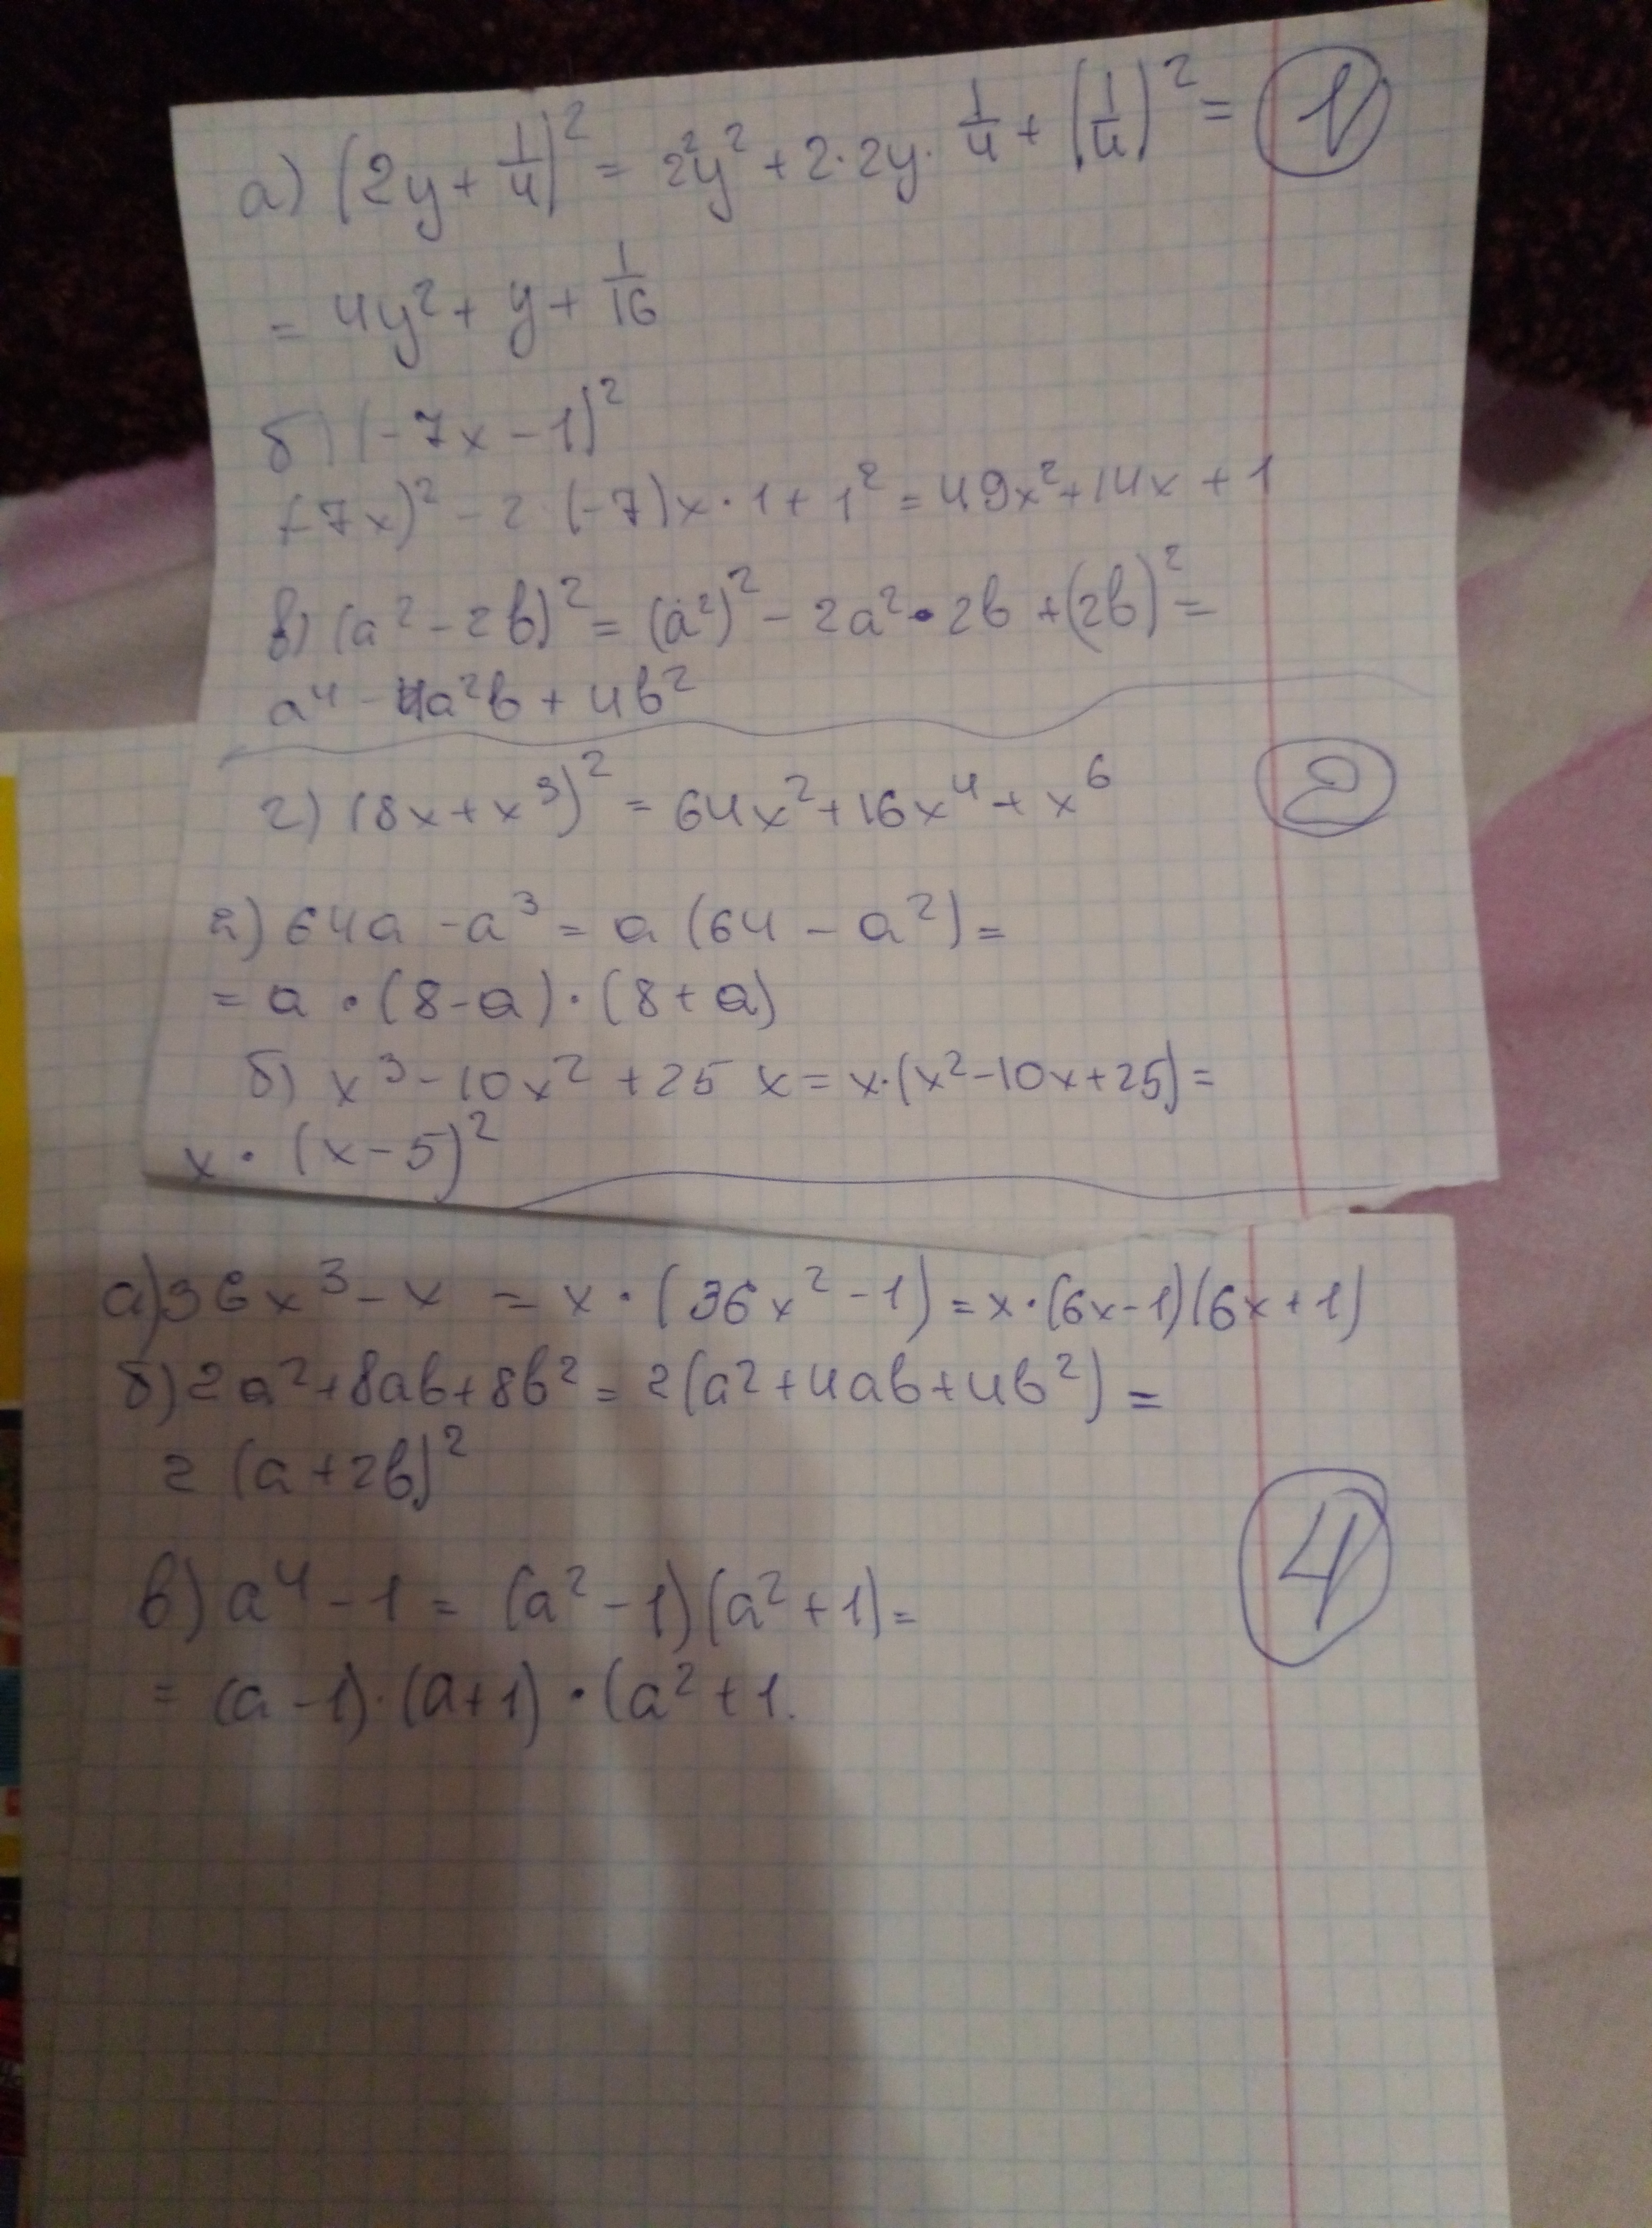 а) (2y + 1/4)² = 2²y² + 2·2y· 1/4 + (1/4)² = 1
= 4y² + y + 1/16
б) (-7x - 1)²
(-7x)² - 2·(-7)x·1 + 1² = 49x² + 14x + 1
в) (a² - 2b)² = (a²)² - 2a²·2b + (2b)² =
a⁴ - 4a²b + 4b²
г) (8x + x³)² = 64x² + 16x⁴ + x⁶ 2
а) 64a - a³ = a (64 - a²) =
= a · (8 - a) · (8 + a)
б) x³ - 10x² + 25 x = x·(x² - 10x + 25) =
x · (x - 5)²
а) 36x³ - x = x · (36x² - 1) = x·(6x - 1)(6x + 1)
б) 2a² + 8ab + 8b² = 2(a² + 4ab + 4b²) =
2 (a + 2b)²
4
в) a⁴ - 1 = (a² - 1)(a² + 1) =
= (a - 1)·(a + 1) · (a² + 1.